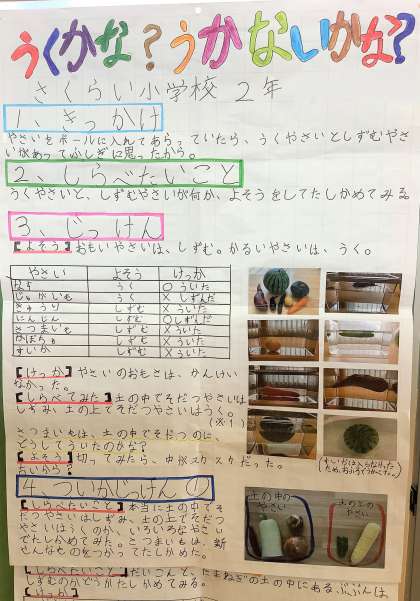 うくかな？うかないかな？
さくらい小学校 2年
1、きっかけ
やさいをボールに入れてあらっていたら、うくやさいとしずむやさ
いがあってふしぎに思ったから。
2、しらべたいこと
うくやさいと、しずむやさいが何か、よそうをしてたしかめてみる。
3、じっけん
【よそう】おもいやさいは、しずむ。かるいやさいは、うく。
やさい よそう けっか
なす うく ○ういた
じゃがいも うく ×しずんだ
きゅうり しずむ ×ういた
にんじん しずむ ○しずんだ
さつまいも しずむ ×ういた
かぼちゃ しずむ ×ういた
すいか しずむ ×ういた
【けっか】やさいのおもさは、かんけい
なかった。
【しらべてみた】土の中でそだつやさいは
しずみ、土の上でそだつやさいはうく。
(※1)
さつまいもは、土の中でそだつのに、
どうしてういたのかな？
【よそう】切ってみたら、中がスカスカだった。
だいから？
(すいかは入らなかった
ためおふろでうかべた。)
4、ついかじっけんの
【しらべたいこと】本当に土の中でそ
だつやさいはしずみ、土の上でそだつ
やさいはうくのか、いろいろなやさい
でたしかめてみた。さつまいもは、新
せんなものをつかってたしかめた。
土の中の
やさい
土の上の
やさい
しらべたいこと】だいこんと、たまねぎの土の中にあるぶぶんは
しずむのかどうかたしかめてみる。
【けっか】